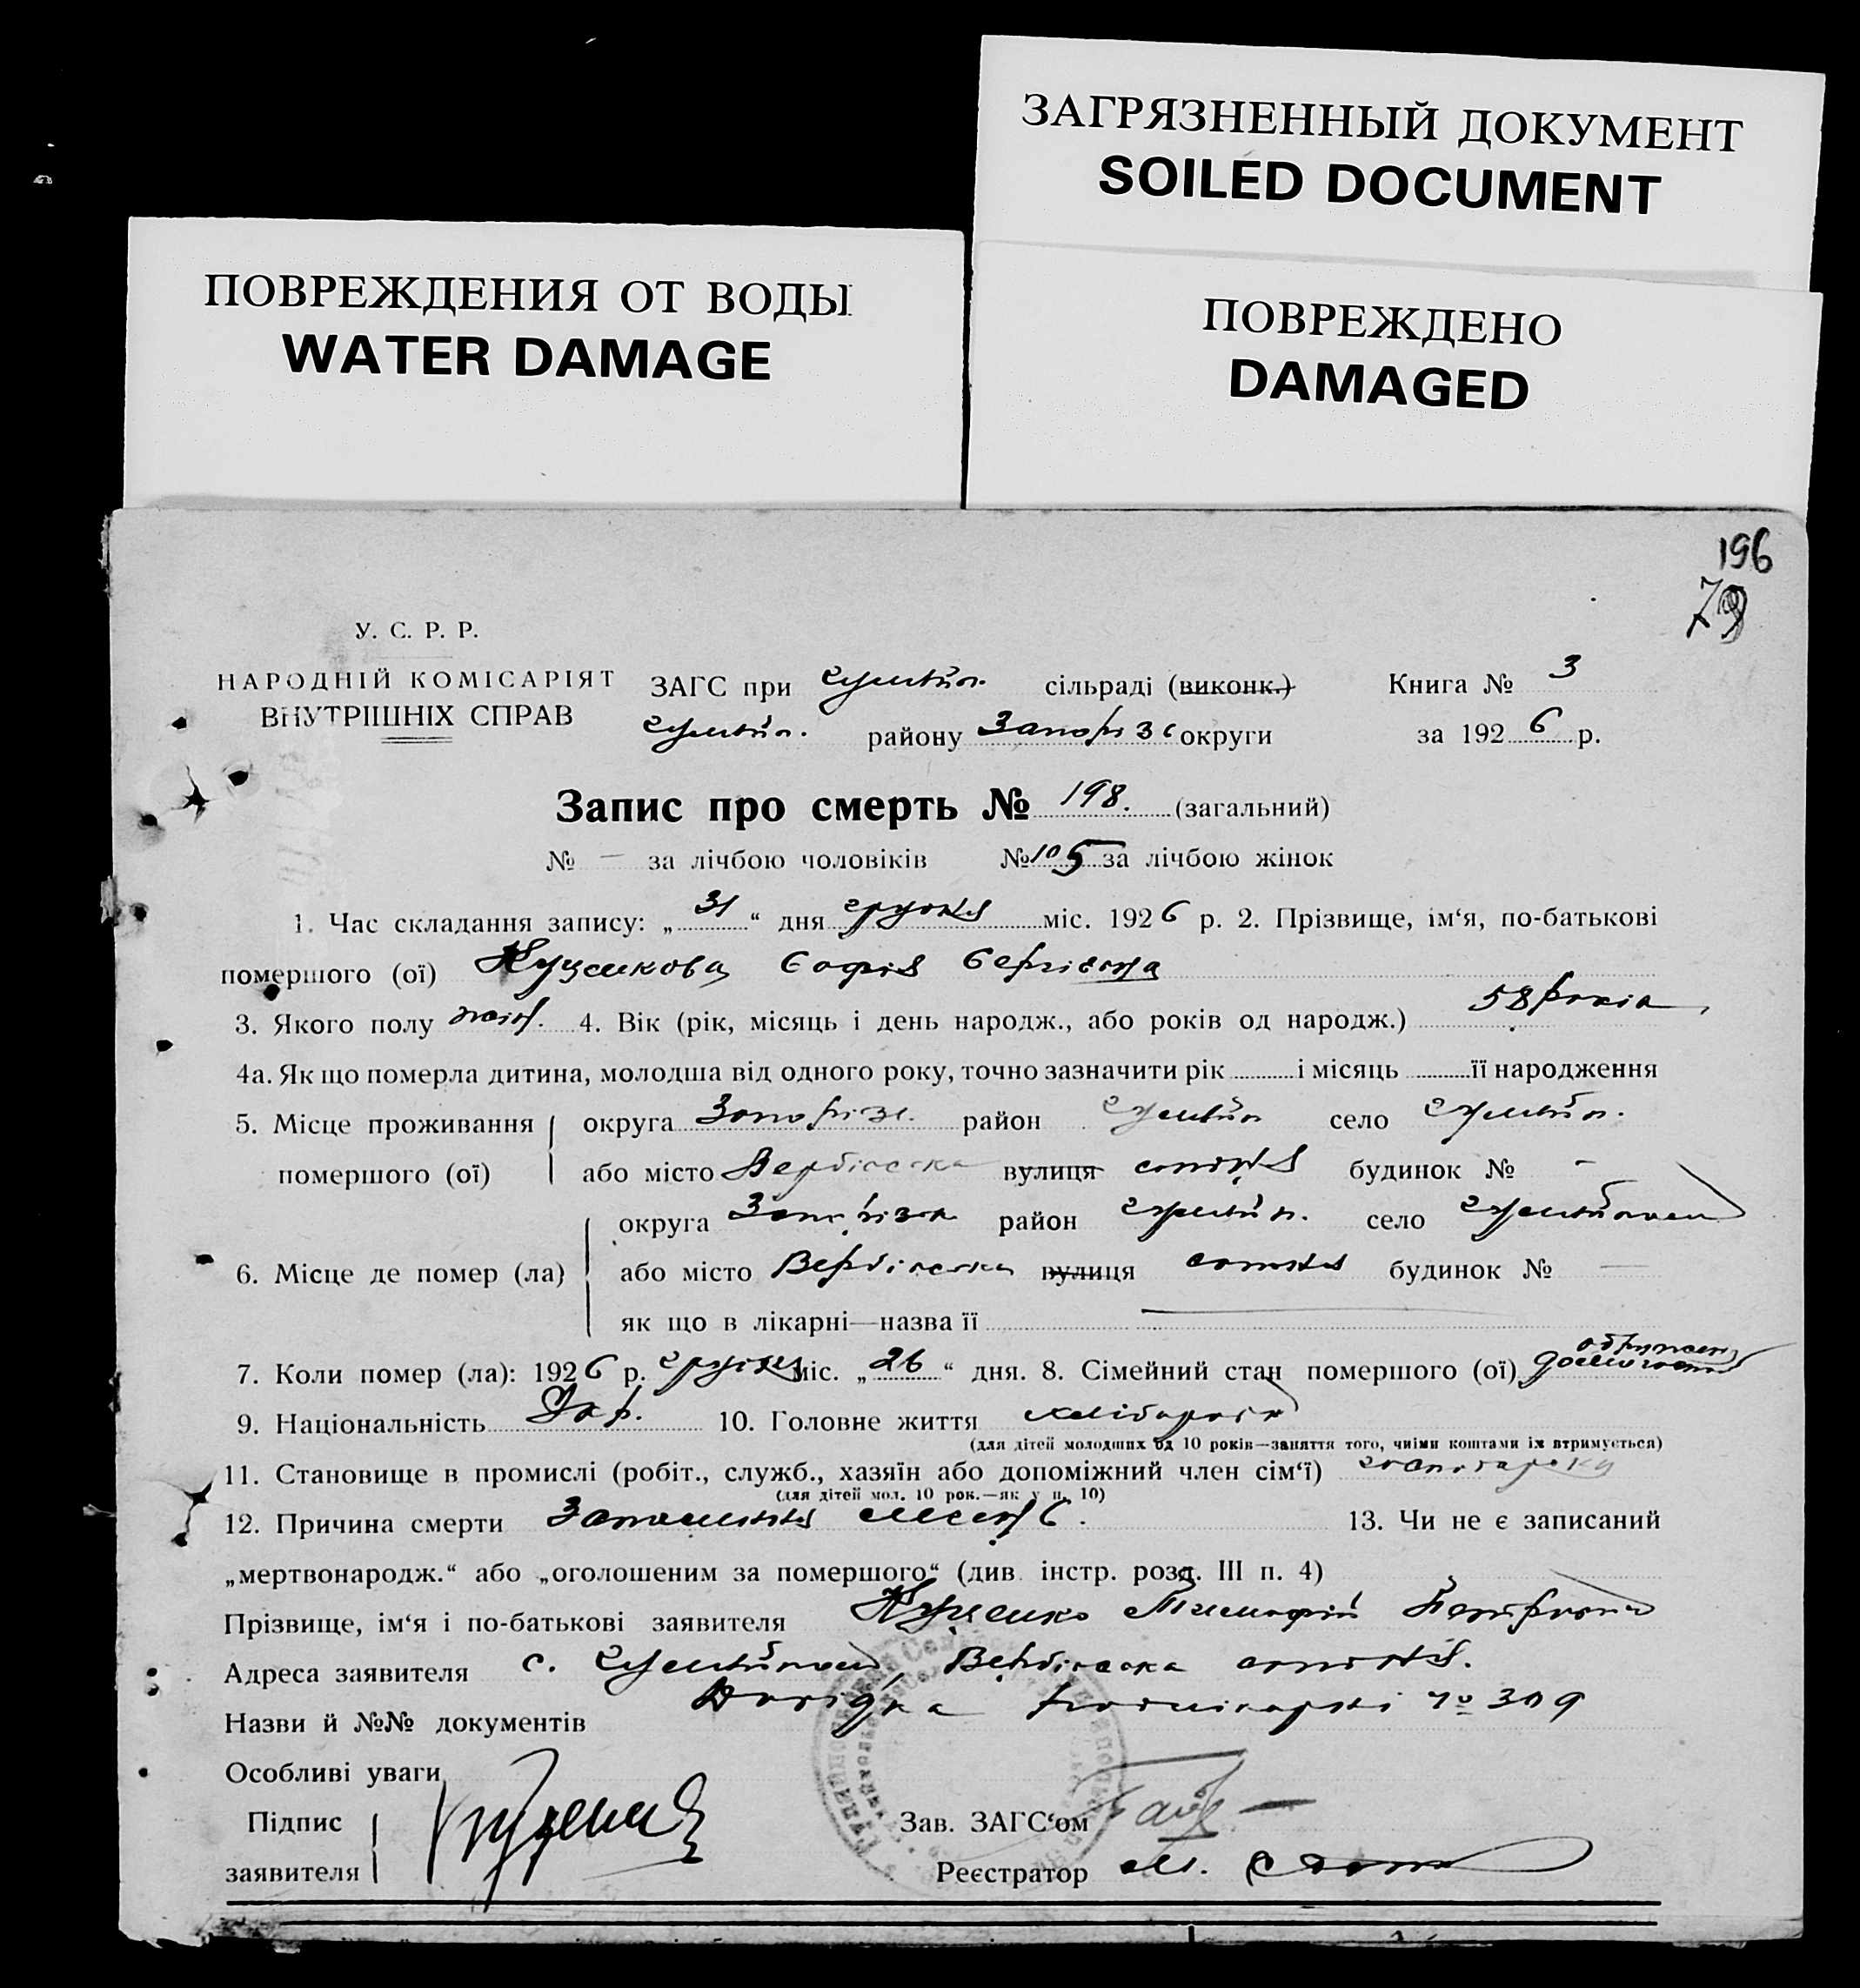 ЗАГРЯЗНЕННЫЙ ДОКУМЕНТ
SOILED DOCUMENT
ПОВРЕЖДЕНИЯ ОТ ВОДЫ
WATER DAMAGE
ПОВРЕЖДЕНО
DAMAGED
196
79
У. С. Р. Р.
НАРОДНІЙ КОМІСАРІЯТ
ВНУТРІШНІХ СПРАВ
ЗАГС при гуляйп. сільраді (виконк.) Книга № 3
гуляйп. району Запоріз округи за 1926 р.
Запис про смерть № 198. (загальний)
№ — за лічбою чоловіків № 105 за лічбою жінок
1. Час складання запису: „31“ дня грудня міс. 1926 р. 2. Прізвище, ім‘я, по-батькові
помершого (ої) Софія Сергієвна
3. Якого полу жін. 4. Вік (рік, місяць і день народж., або років од народж.) 58 років
4а. Як що померла дитина, молодша від одного року, точно зазначити рік і місяць її народження
5. Місце проживання округа Запоріз. район гуляйп село гуляйп.
помершого (ої) або місто Вербівська вулиця сотня будинок № -
округа Запорізк район гуляйп. село гуляйполе
6. Місце де помер (ла) або місто Вербівська вулиця сотня будинок № —
як що в лікарні—назва її
7. Коли помер (ла): 1926 р. грудня міс. „26“ дня. 8. Сімейний стан помершого (ої)
9. Національність Укр. 10. Головне життя хлібороб
(для дітей молодших од 10 років—заняття того, чиїми коштами їх втримується)
11. Становище в промислі (робіт., служб., хазяїн або допоміжний член сім‘ї)
(для дітей мол. 10 рок.—як у п. 10)
12. Причина смерти Запалення 13. Чи не є записаний
„мертвонародж.“ або „оголошеним за помершого“ (див. інстр. розд. III п. 4)
Прізвище, ім‘я і по-батькові заявителя Куценко Тимофій Петрович
Адреса заявителя с. Гуляйполе, Вербівська сотня.
Назви й №№ документів Довідка № 309
Особливі уваги
Підпис
заявителя
Зав. ЗАГС‘ом
Реєстратор М.